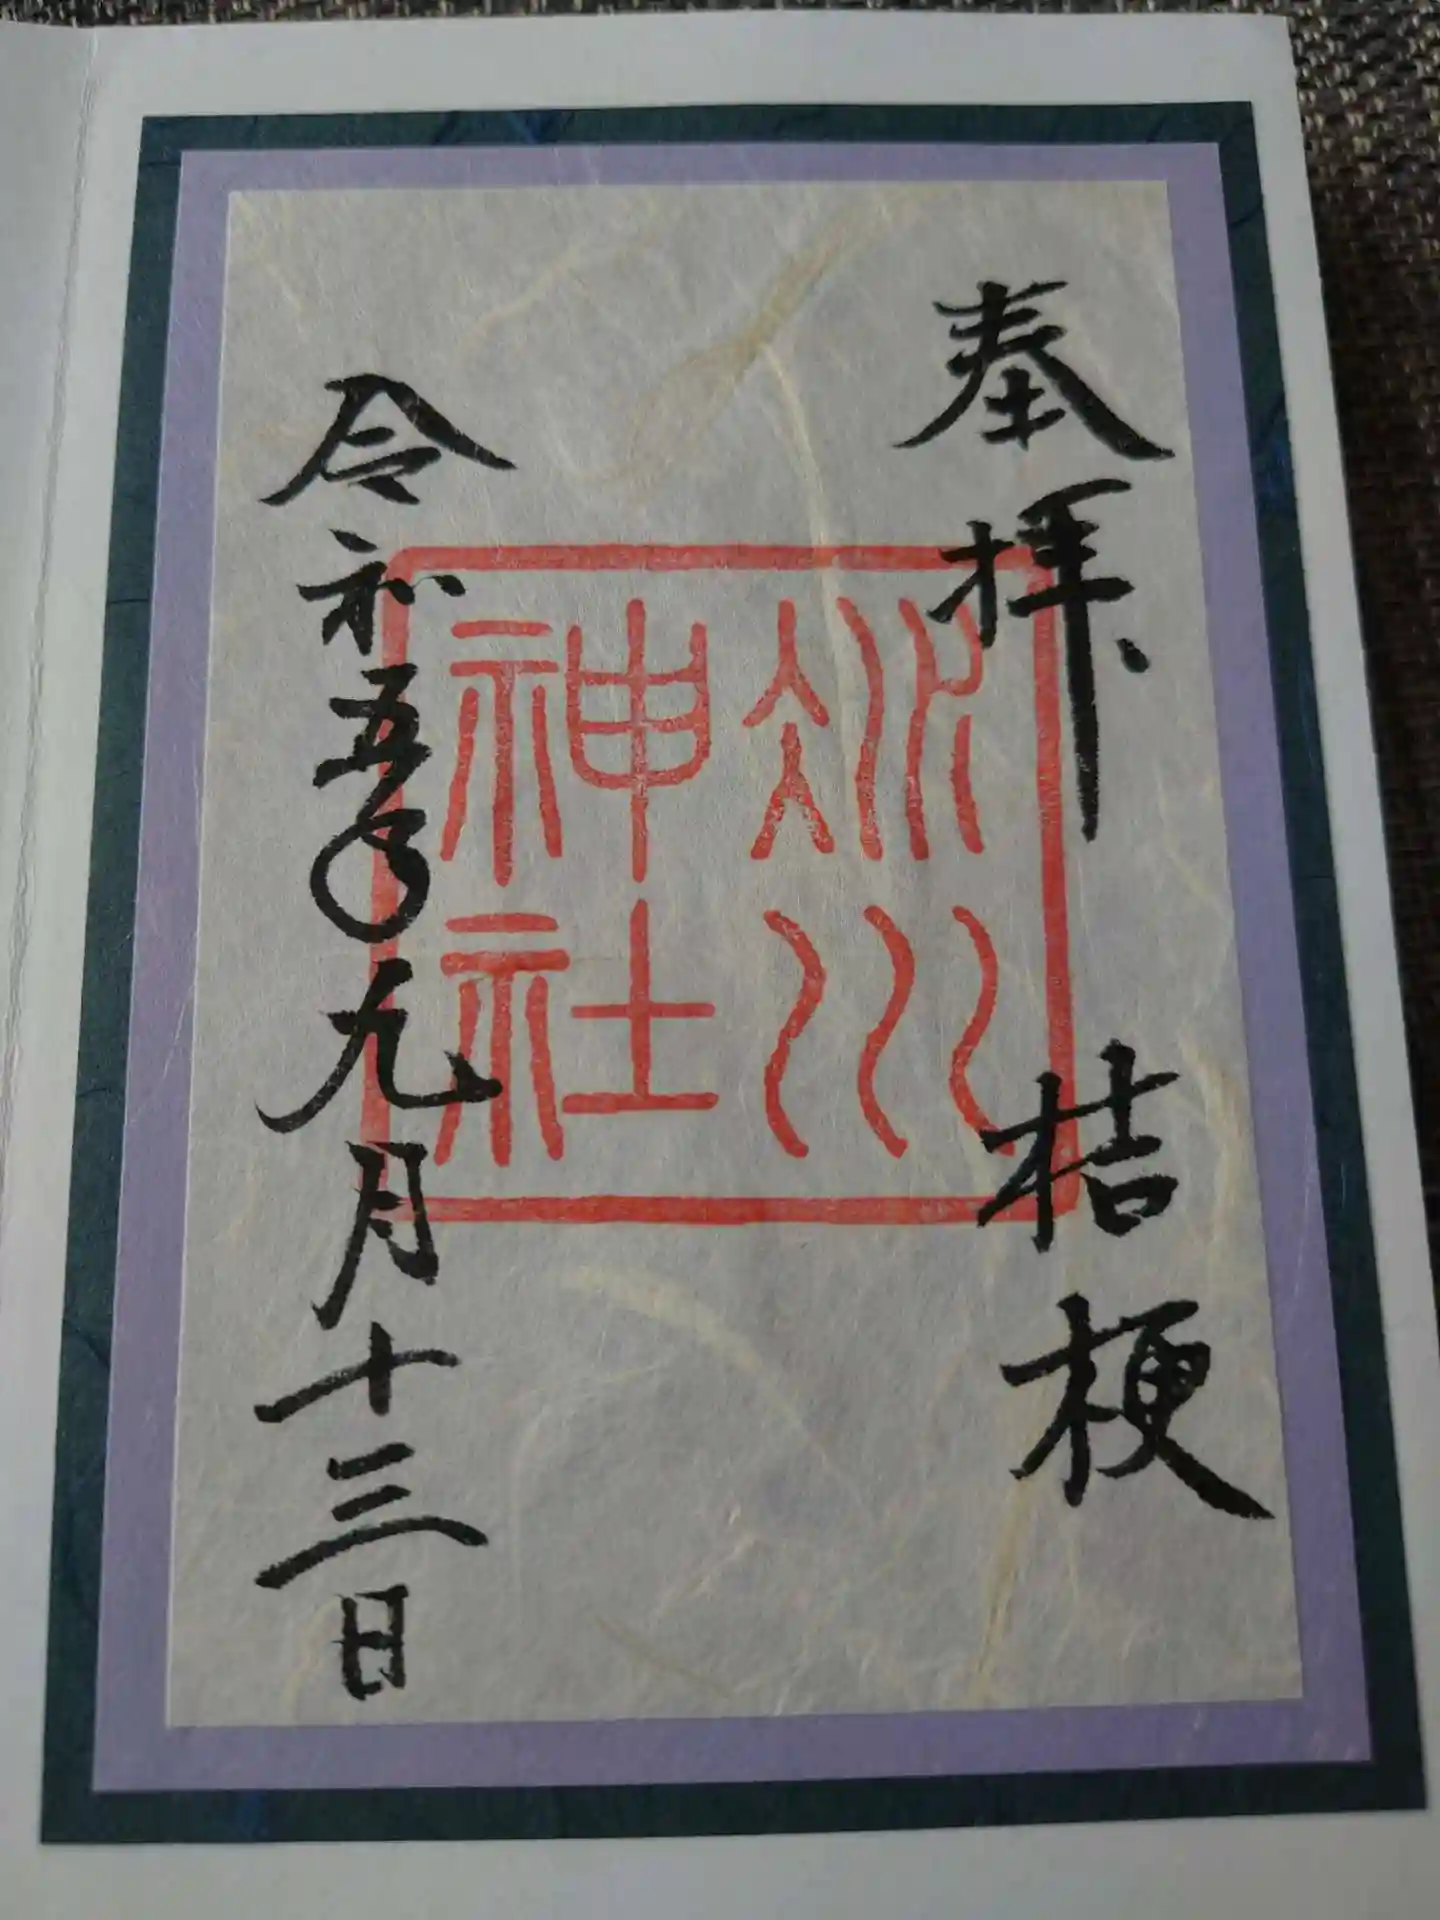 奉拝　桔梗
冰川
神社
令和五年九月十三日